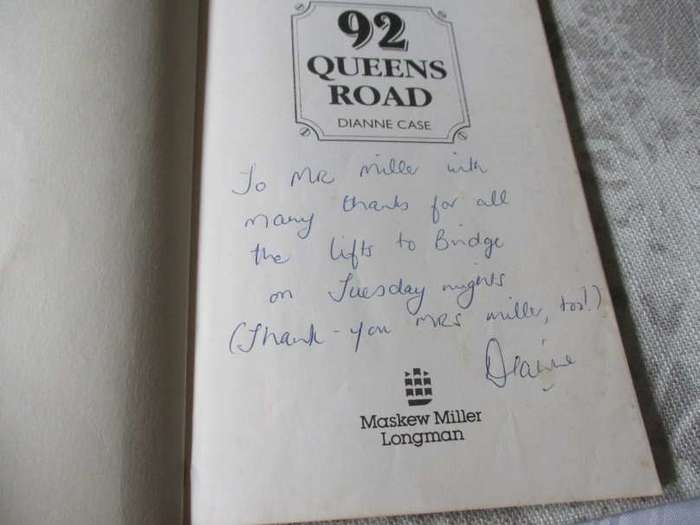 92
QUEENS
ROAD
DIANNE CASE
To MR Miller with
many thanks for all
the lifts to Bridge
on Tuesday nights
(Thank-you MRS Miller, too!)
Dianne
Maskew Miller
Longman